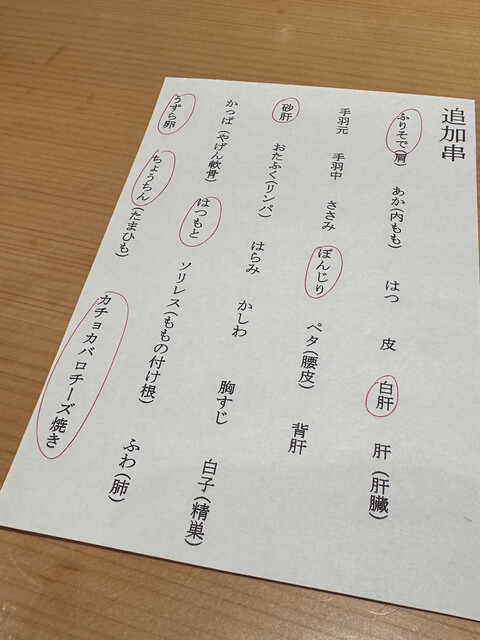 追加串
ふりそで(肩) あか(内もも) はつ 皮 白肝 肝(肝臓)
手羽元 手羽中 ささみ ぼんじり ペタ(腰皮) 背肝
砂肝 おたふく(リンパ) はらみ かしわ 胸すじ 白子(精巣)
かっぱ(やげん軟骨) はつもと ソリレス(ももの付け根) ふわ(肺)
うずら卵 ちょうちん(たまひも) カチョカバロチーズ焼き